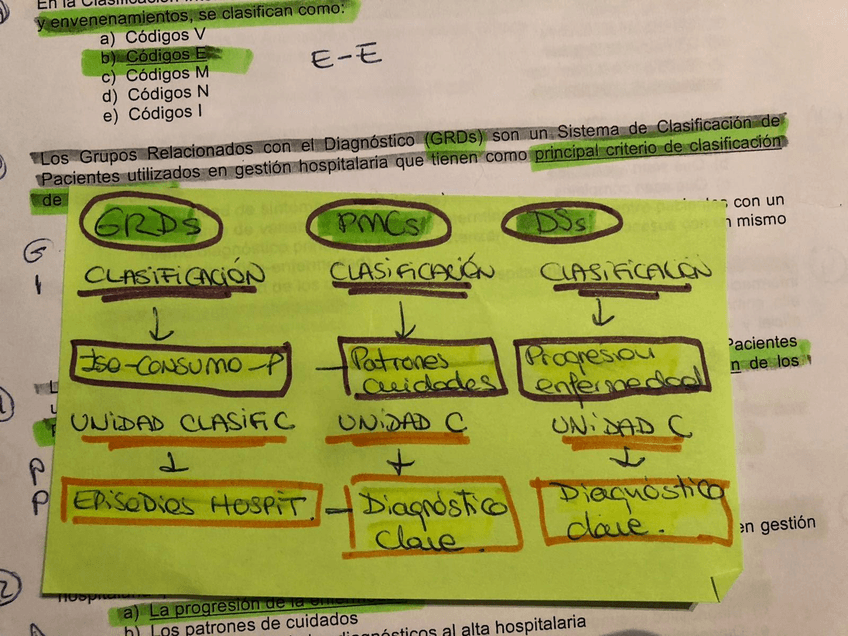 En la Clasificación
y envenenamientos, se clasifican como:
a) Códigos V
b) Códigos E
c) Códigos M
d) Códigos N
e) Códigos I
E-E
Los Grupos Relacionados con el Diagnóstico (GRDs) son un Sistema de Clasificación de
Pacientes utilizados en gestión hospitalaria que tienen como principal criterio de clasificación
de
con un
mismo
G
I
GRDs PMCs DSs
CLASIFICACIÓN CLASIFICACIÓN CLASIFICACIÓN
ISO-CONSUMO-P Patrones cuidados Progresion enfermedad
Pacientes
de los
UNIDAD CLASIFIC UNIDAD C UNIDAD C
P
P
EPISODIOS HOSPIT. Diagnóstico clave. Diagnóstico clave.
en gestión
a) La progresión de la
b) Los patrones de cuidados
diagnósticos al alta hospitalaria